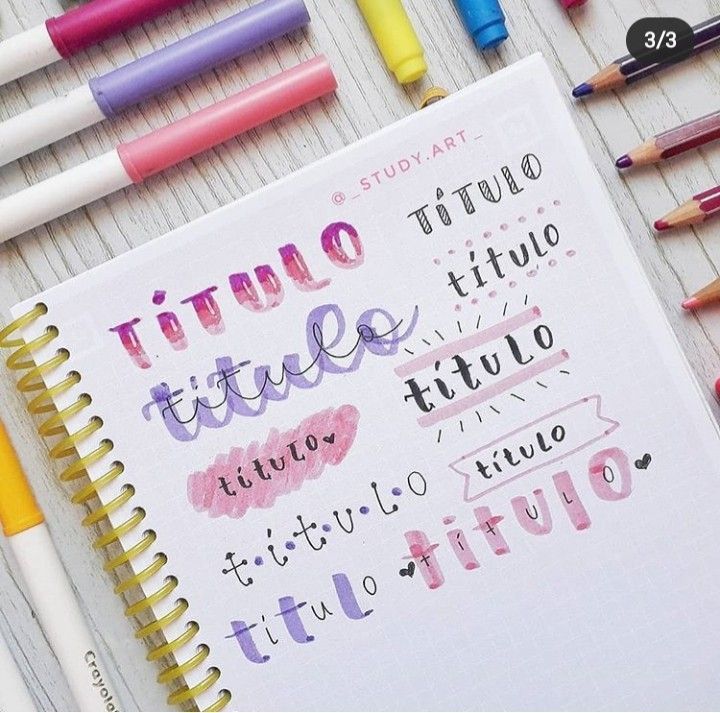 3/3
@_STUDY.ART_
TÍTULO
título
título
título
t•í•t•u•l•o
título
TÍTULO
título
título
título
título
título
Crayola